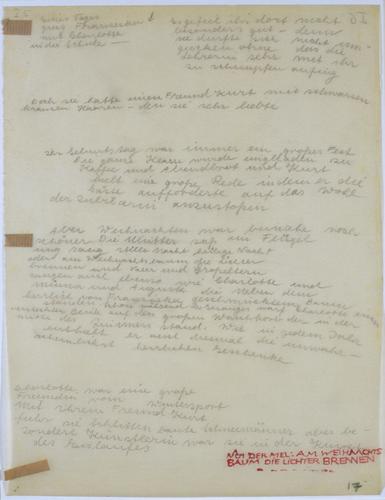 Eines Tages
ging Franziska
mit Charlotte
in die Schule –
Es gefiel ihr dort nicht
besonders gut – denn
sie durfte sich nicht
ohne das die
Lehrerin sehr mit ihr
zu schimpfen anfing
Doch sie hatte einen Freund Kurt mit schwarzen
braunen Haaren – den sie sehr liebte
Ihr Geburtstag war immer ein großes Fest
Die ganze Klasse wurde eingeladen zu
Kaffee und Abendbrot und Kurt
hielt eine große Rede in der er die
Gäste aufforderte auf das Wohl
der Jubilarin anzustoßen
Aber Weihnachten war beinahe noch
schöner. Die Mutter saß am Flügel
und sang stille Nacht heilige Nacht
oder am Weihnachtsbaum die Lichter
brennen und Vater und Großeltern
sangen mit ebenso wie Charlotte und
und Auguste die neben dem
herrlich von Franziska geschmückten Baum
standen
auf den großen der in der
Mitte des Zimmers stand. Wie in jedem Jahr
enthielt er auch diesmal die
herrlichen Geschenke
Charlotte war eine große
Freundin vom Wintersport
Mit ihrem Freund Kurt
sie Schlitten baute Schneemänner aber be-
sondere Künstlerin war sie in der Kunst
des Eislaufes
NACH DER MEL: AM WEIHNACHTS
BAUM DIE LICHTER BRENNEN
17